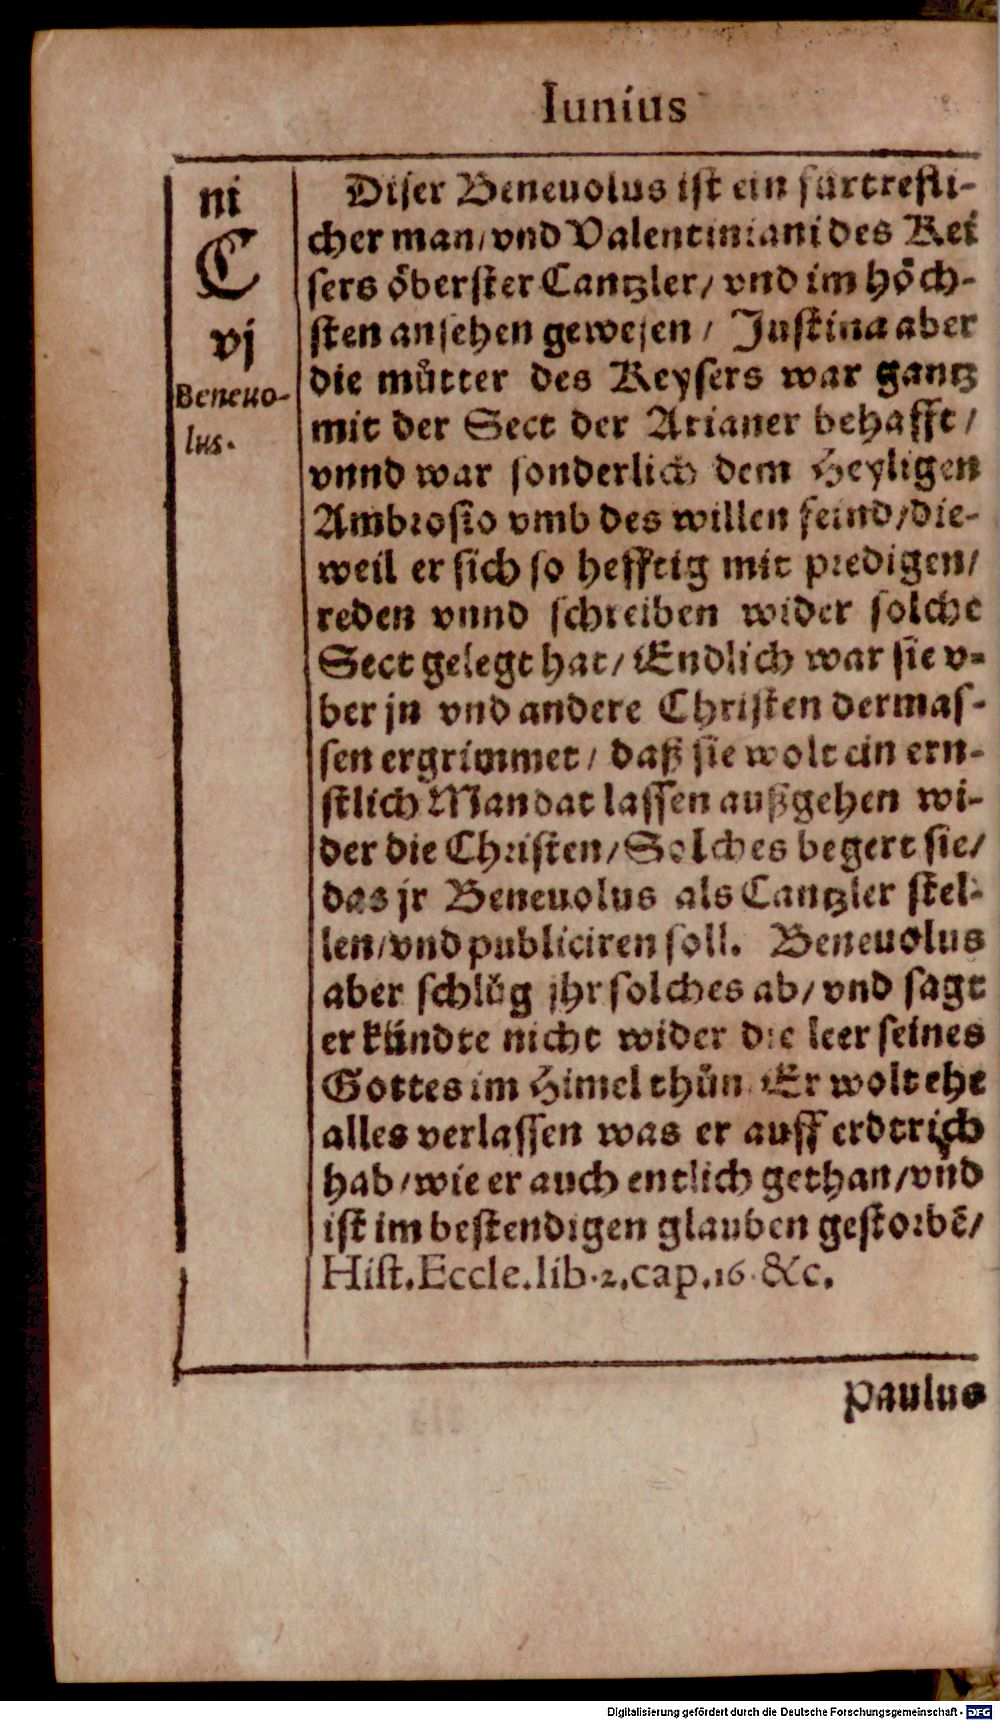 Iunius
ni
C
vj
Beneuo-
lus.
Diser Beneuolus ist ein fürtrefli-
cher man/vnd Valentiniani des Kei
sers öberster Cantzler/ vnd im höch-
sten ansehen gewesen/ Justina aber
die můtter des Keysers war gantz
mit der Sect der Arianer behafft/
vnnd war sonderlich dem Heyligen
Ambrosio vmb des willen feind/die-
weil er sich so hefftig mit predigen/
reden vnnd schreiben wider solche
Sect gelegt hat/ Endlich war sie v-
ber jn vnd andere Christen dermas-
sen ergrimmet/ daß sie wolt ein ern-
stlich Mandat lassen außgehen wi-
der die Christen/Solches begert sie/
das jr Beneuolus als Cantzler stel-
len/vnd publiciren soll. Beneuolus
aber schlůg jhr solches ab/ vnd sagt
er kündte nicht wider die leer seines
Gottes im Himel thůn Er wolt ehe
alles verlassen was er auff erdtrich
hab/wie er auch entlich gethan/vnd
ist im bestendigen glauben gestorbē/
Hist.Eccle.lib.2.cap.16.&c.
Paulus
Digitalisierung gefördert durch die Deutsche Forschungsgemeinschaft - DFG